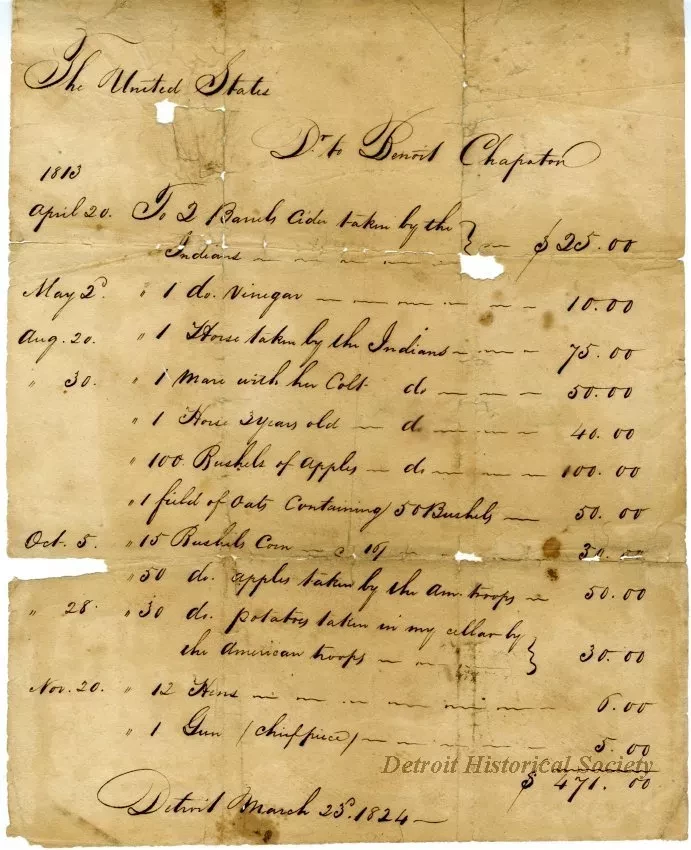 The United States
Dr. to Benoit Chapaton
1813
April 20. To 2 Barrels Cider taken by the
Indians } $ 25.00
May 2d " 1 do. Vinegar 10.00
Aug. 20. " 1 Horse taken by the Indians 75.00
" 30. " 1 Mare with her Colt do 50.00
" 1 Horse 3 years old do 40.00
" 100 Bushels of Apples do 100.00
" 1 field of Oats Containing 50 Bushels 50.00
Oct. 5. " 15 Bushels Corn 30.00
" 50 do. apples taken by the Am. troops 50.00
" 28. " 30 do. potatoes taken in my cellar by
the American troops } 30.00
Nov. 20. " 12 Hens 6.00
" 1 Gun (chief piece) 5.00
Detroit Historical Society
$ 471.00
Detroit March 23d. 1824